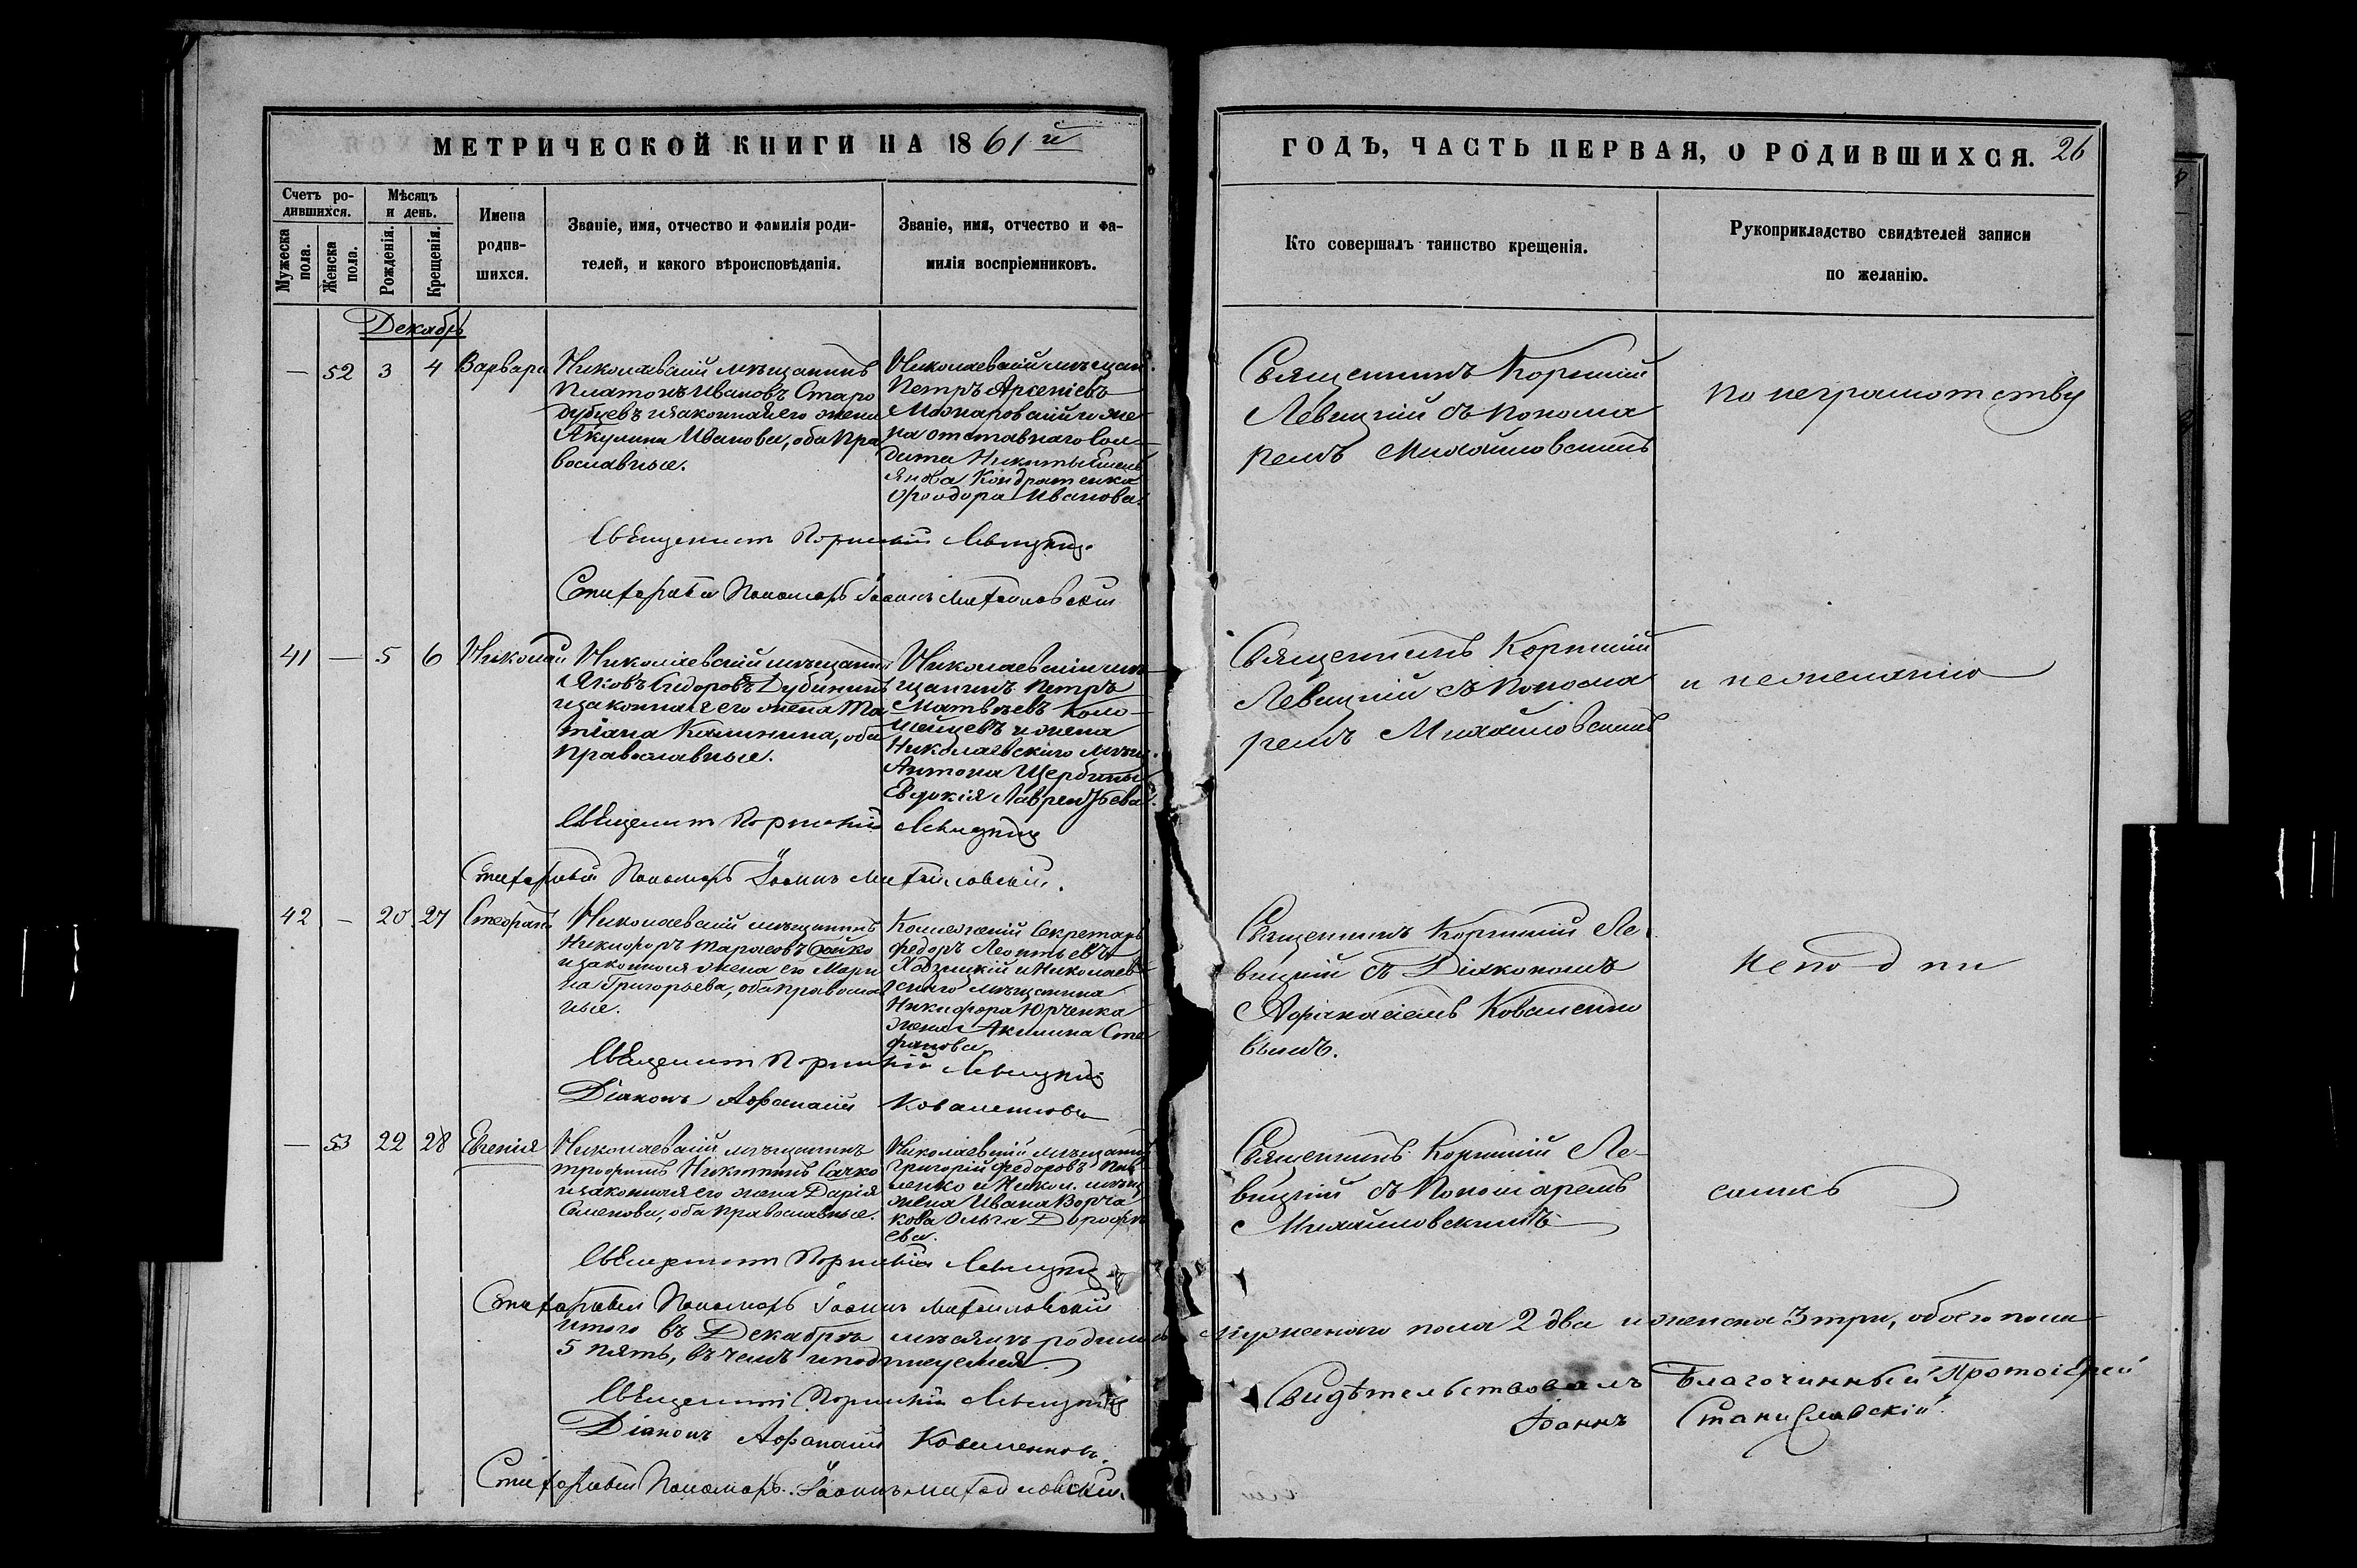 МЕТРИЧЕСКОЙ КНИГИ НА 1861 й
ГОДЪ, ЧАСТЬ ПЕРВАЯ, О РОДИВШИХСЯ. 26
Счетъ ро-
дившихся.
Мужеска пола.
Женска пола.
Мѣсяцъ
и день.
Рожденія.
Крещенія.
Имена
родив-
шихся.
Званіе, имя, отчество и фамилія роди-
телей, и какого вѣроисповѣданія.
Званіе, имя, отчество и фа-
милія воспріемниковъ.
Кто совершалъ таинство крещенія.
Рукоприкладство свидѣтелей записи
по желанію.
Декабрь
— 52 3 4 Варвара
Николаевскій мѣщанинъ
Платонъ Ивановъ Старо
дубцевъ и законная его жена
Акулина Иванова, оба пра
вославные.
Николаевскій мѣщан.
Петръ Арсеніевъ
Можаровскій и же
на отставнаго сол-
дата Никиты
Кондратенко
Ѳеодора Иванова.
Священникъ Корнилій
Левицкій съ понома
ремъ Михайловскимъ
по неграмотству
Священникъ Корнилій Левицкій
Стихарный Пономарь Іоаннъ Михайловскій
41 — 5 6 Николай
Николаевскій мѣщанинъ
Яковъ Сидоровъ Дубининъ
и законная его жена Та
тіана Калинина, оба
православные.
Николаевскій мѣ
щанинъ Петръ
Матвѣевъ Коло-
мейцевъ и жена
Николаевскаго мѣщ.
Антона Щербины
Евдокія Лаврентьева.
Священникъ Корнилій
Левицкій съ понома
ремъ Михайловскимъ
и нежеланію
Священникъ Корнилій Левицкій
Стихарный Пономарь Іоаннъ Михайловскій.
42 — 20 27 Стефанъ
Николаевскій мѣщанинъ
Никифоръ Тарасовъ
и законная жена его Мари
на Григорьева, оба православ
ные.
Коллежскій Секретарь
Федоръ Леонтьевъ
и Николаев
скаго мѣщанина
Никифора Юрченка
жена Акилина Сте
фанова
Священникъ Корнилій Ле
вицкій съ Діакономъ
Афанасіемъ Коваленко
вымъ.
Неподпи
Священникъ Корнилій Левицкій
Діаконъ Афанасій Коваленковъ
— 53 22 28 Евгенія
Николаевскій мѣщанинъ
Трофимъ Никитинъ Сачко
и законная его жена Дарія
Семенова, оба православные.
Николаевскій мѣщанинъ
Григорій Федоровъ Пав
ленко и Никол. мѣщ.
жена Ивана Ворча
кова Ольга Дорофѣ
ева.
Священникъ Корнилій Ле-
вицкій съ Пономаремъ
Михайловскимъ
сались
Священникъ Корнилій Левицкій
Стихарный Пономарь Іоаннъ Михайловскій
Итого въ Декабрѣ мѣсяцѣ родилось мужескаго пола 2 два и женска 3 три, обоего пола
5 пять, въ чемъ и подписуемся.
Священникъ Корнилій Левицкій
Діаконъ Афанасій Коваленковъ.
Стихарный Пономарь Іоаннъ Михайловскій.
Свидѣтельствовалъ Благочинный Протоіерей
Іоаннъ Станиславскій.